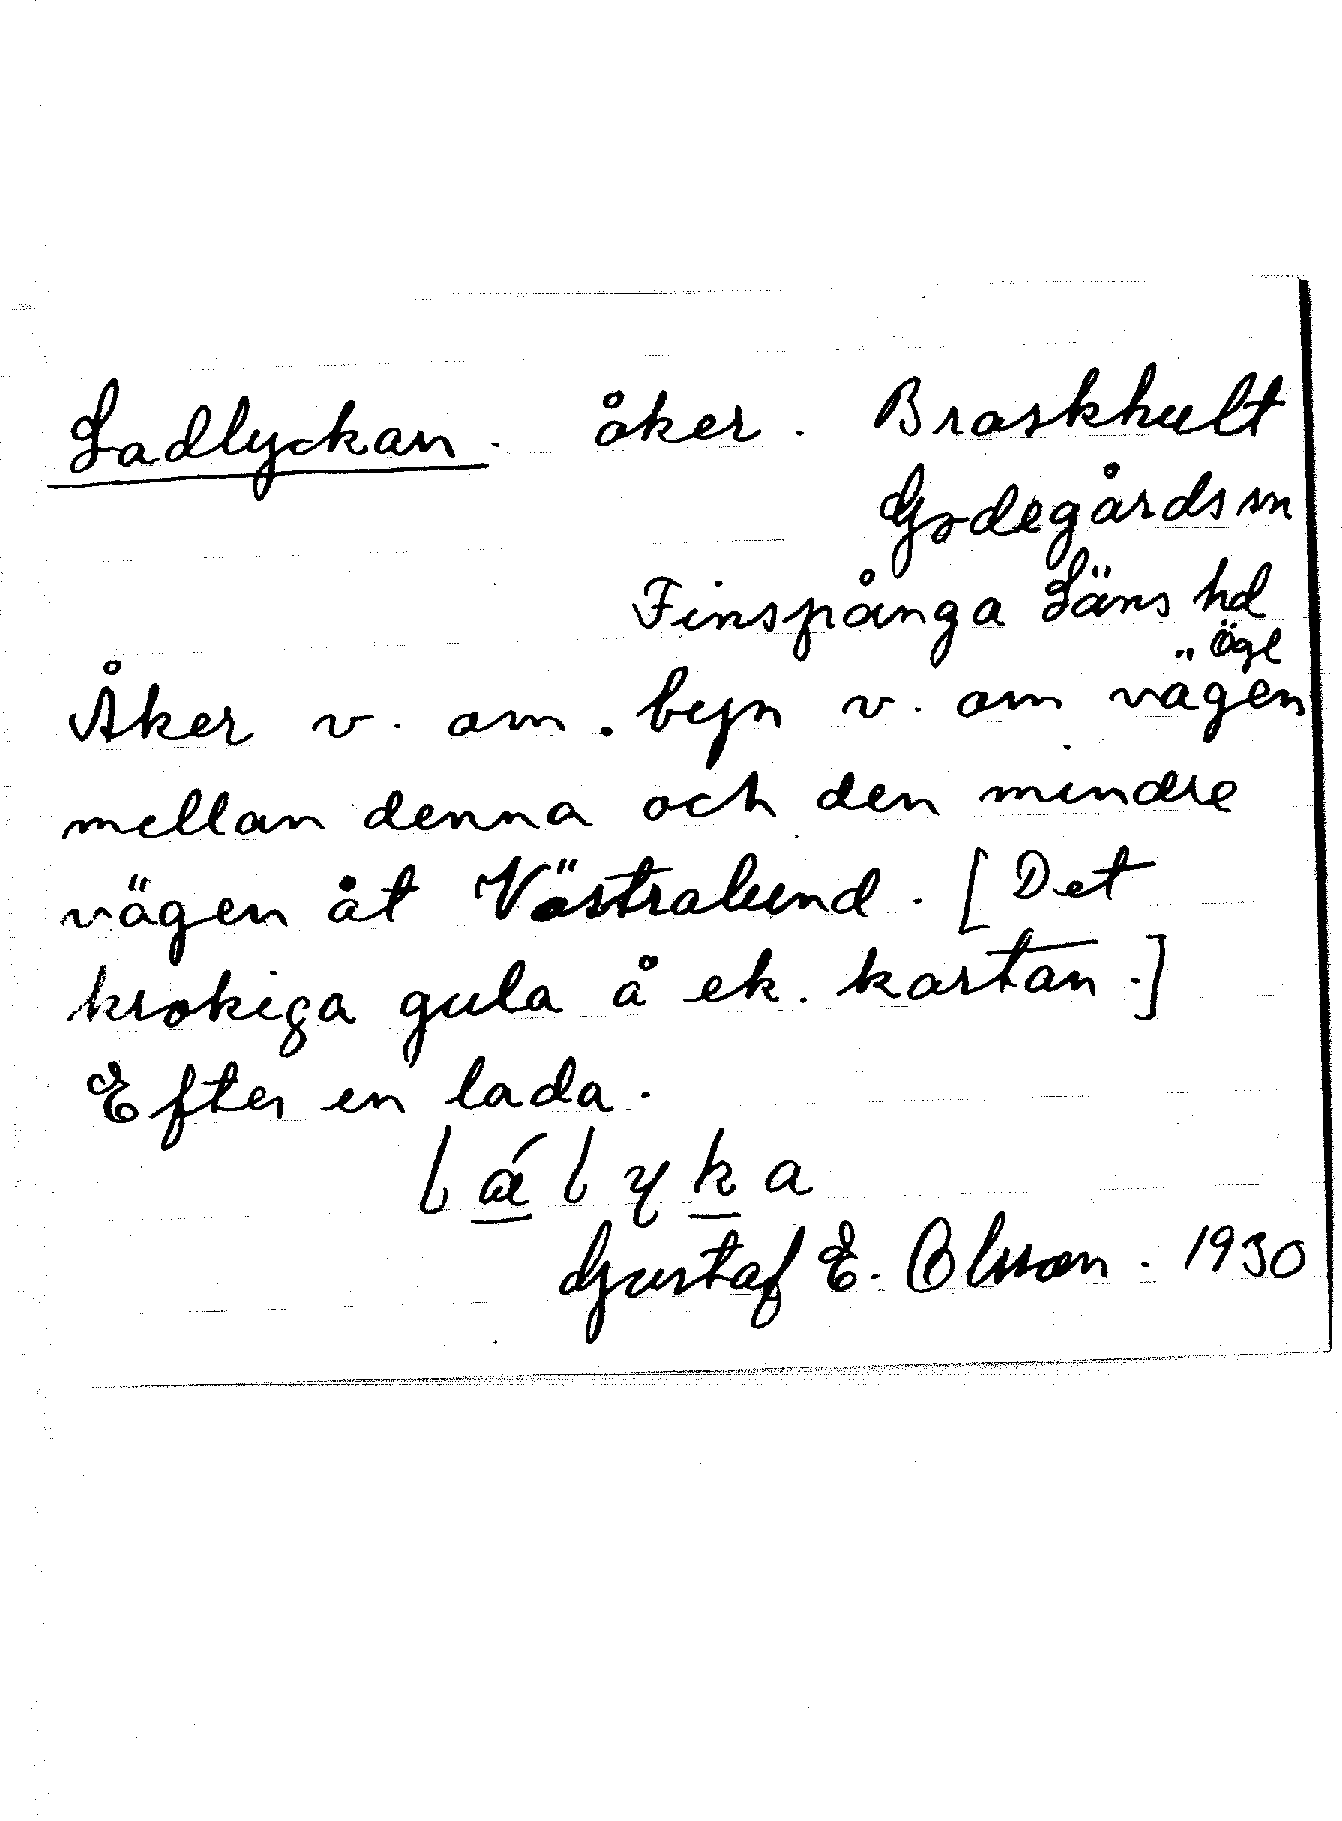 Ladlyckan. åker. Braskhult
Godegårds sn
Finspånga Läns hd
Ögl
Åker v. om. byn v. om vägen
mellan denna och den mindre
vägen åt Västralund. [Det
krokiga gula å ek. kartan.]
Efter en lada.
lályka
Gustaf E. Olsson. 1930